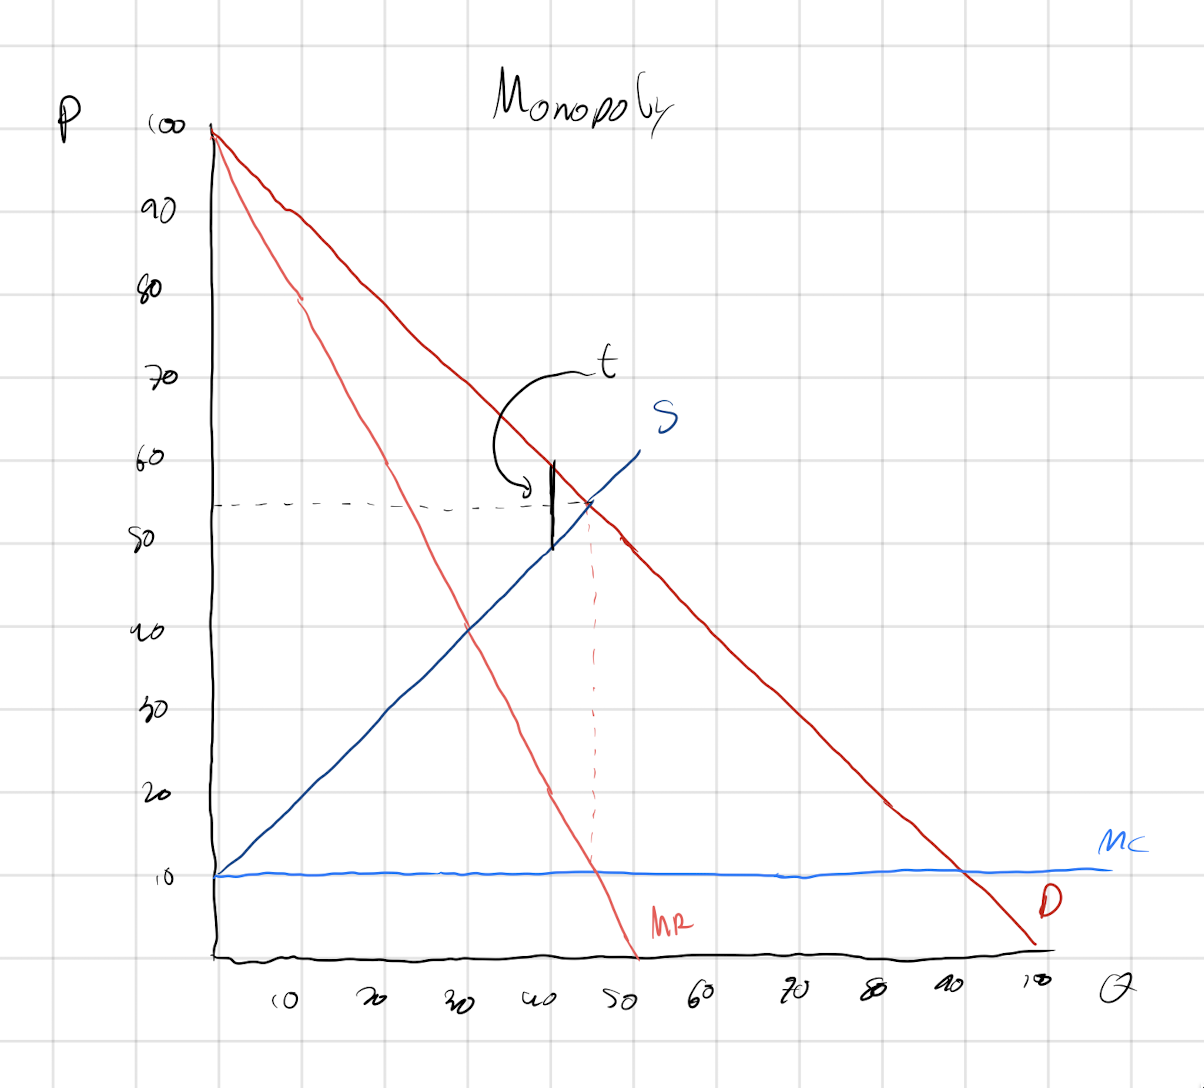 Monopoly
P
100
90
80
70
t
S
60
50
40
30
20
10
MC
D
MR
10 20 30 40 50 60 70 80 90 100 Q